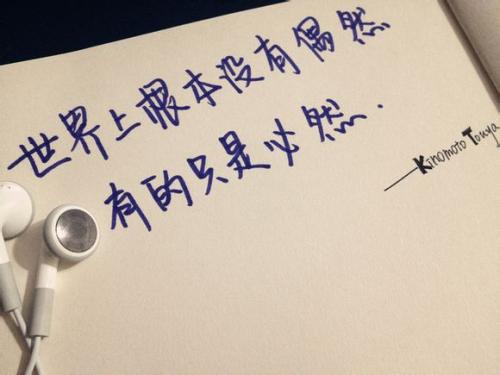 世界上根本没有偶然
有的只是必然.
——Kinomoto Touya